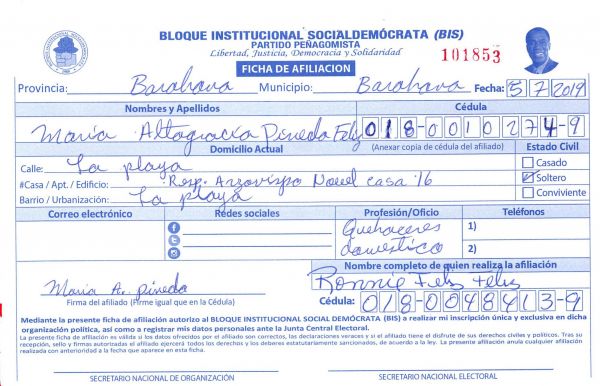 BLOQUE INSTITUCIONAL SOCIALDEMÓCRATA (BIS)
PARTIDO PEÑAGOMISTA
Libertad, Justicia, Democracia y Solidaridad
101853
FICHA DE AFILIACION
Provincia: Barahona Municipio: Barahona Fecha: 5/7/2019
Nombres y Apellidos Cédula
Maria Altagracia Pineda Feliz 018-0010274-9
Domicilio Actual (Anexar copia de cédula del afiliado) Estado Civil
Calle: La playa Casado
#Casa / Apt. / Edificio: Resp. Arzovispo Nouel casa 16 Soltero
Barrio / Urbanización: La playa Conviviente
Correo electrónico Redes sociales Profesión/Oficio Teléfonos
Quehaceres 1)
domestico 2)
Nombre completo de quien realiza la afiliación
Maria A. pineda Ronnie Feliz Feliz
Firma del afiliado (Firme igual que en la Cédula) Cédula: 018-0048413-9
Mediante la presente ficha de afiliación autorizo al BLOQUE INSTITUCIONAL SOCIAL DEMÓCRATA (BIS) a realizar mi inscripción única y exclusiva en dicha
organización política, así como a registrar mis datos personales ante la Junta Central Electoral.
La presente ficha de afiliación es válida si los datos ofrecidos por el afiliado son correctos, las declaraciones veraces y si el afiliado tiene el disfrute de sus derechos civiles y políticos. Tras su
recepción, sello y firmas autorizadas el afiliado ejercerá todos los derechos y los deberes estatutariamente sancionados, de acuerdo a la ley. La presente afiliación anula cualquier afiliación
realizada con anterioridad a la fecha que aparece en esta ficha.
SECRETARIO NACIONAL DE ORGANIZACIÓN SECRETARIO NACIONAL ELECTORAL